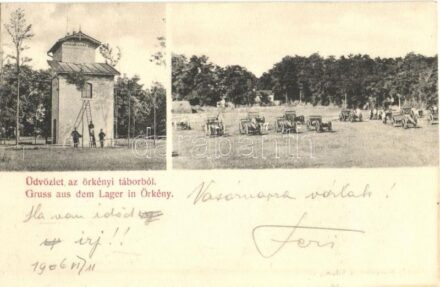 darabanth
Üdvözlet az örkényi táborból.
Gruss aus dem Lager in Örkény.
Vasárnapra várlak!
Ha van időd
irj!!
Feri
1906 VI/11